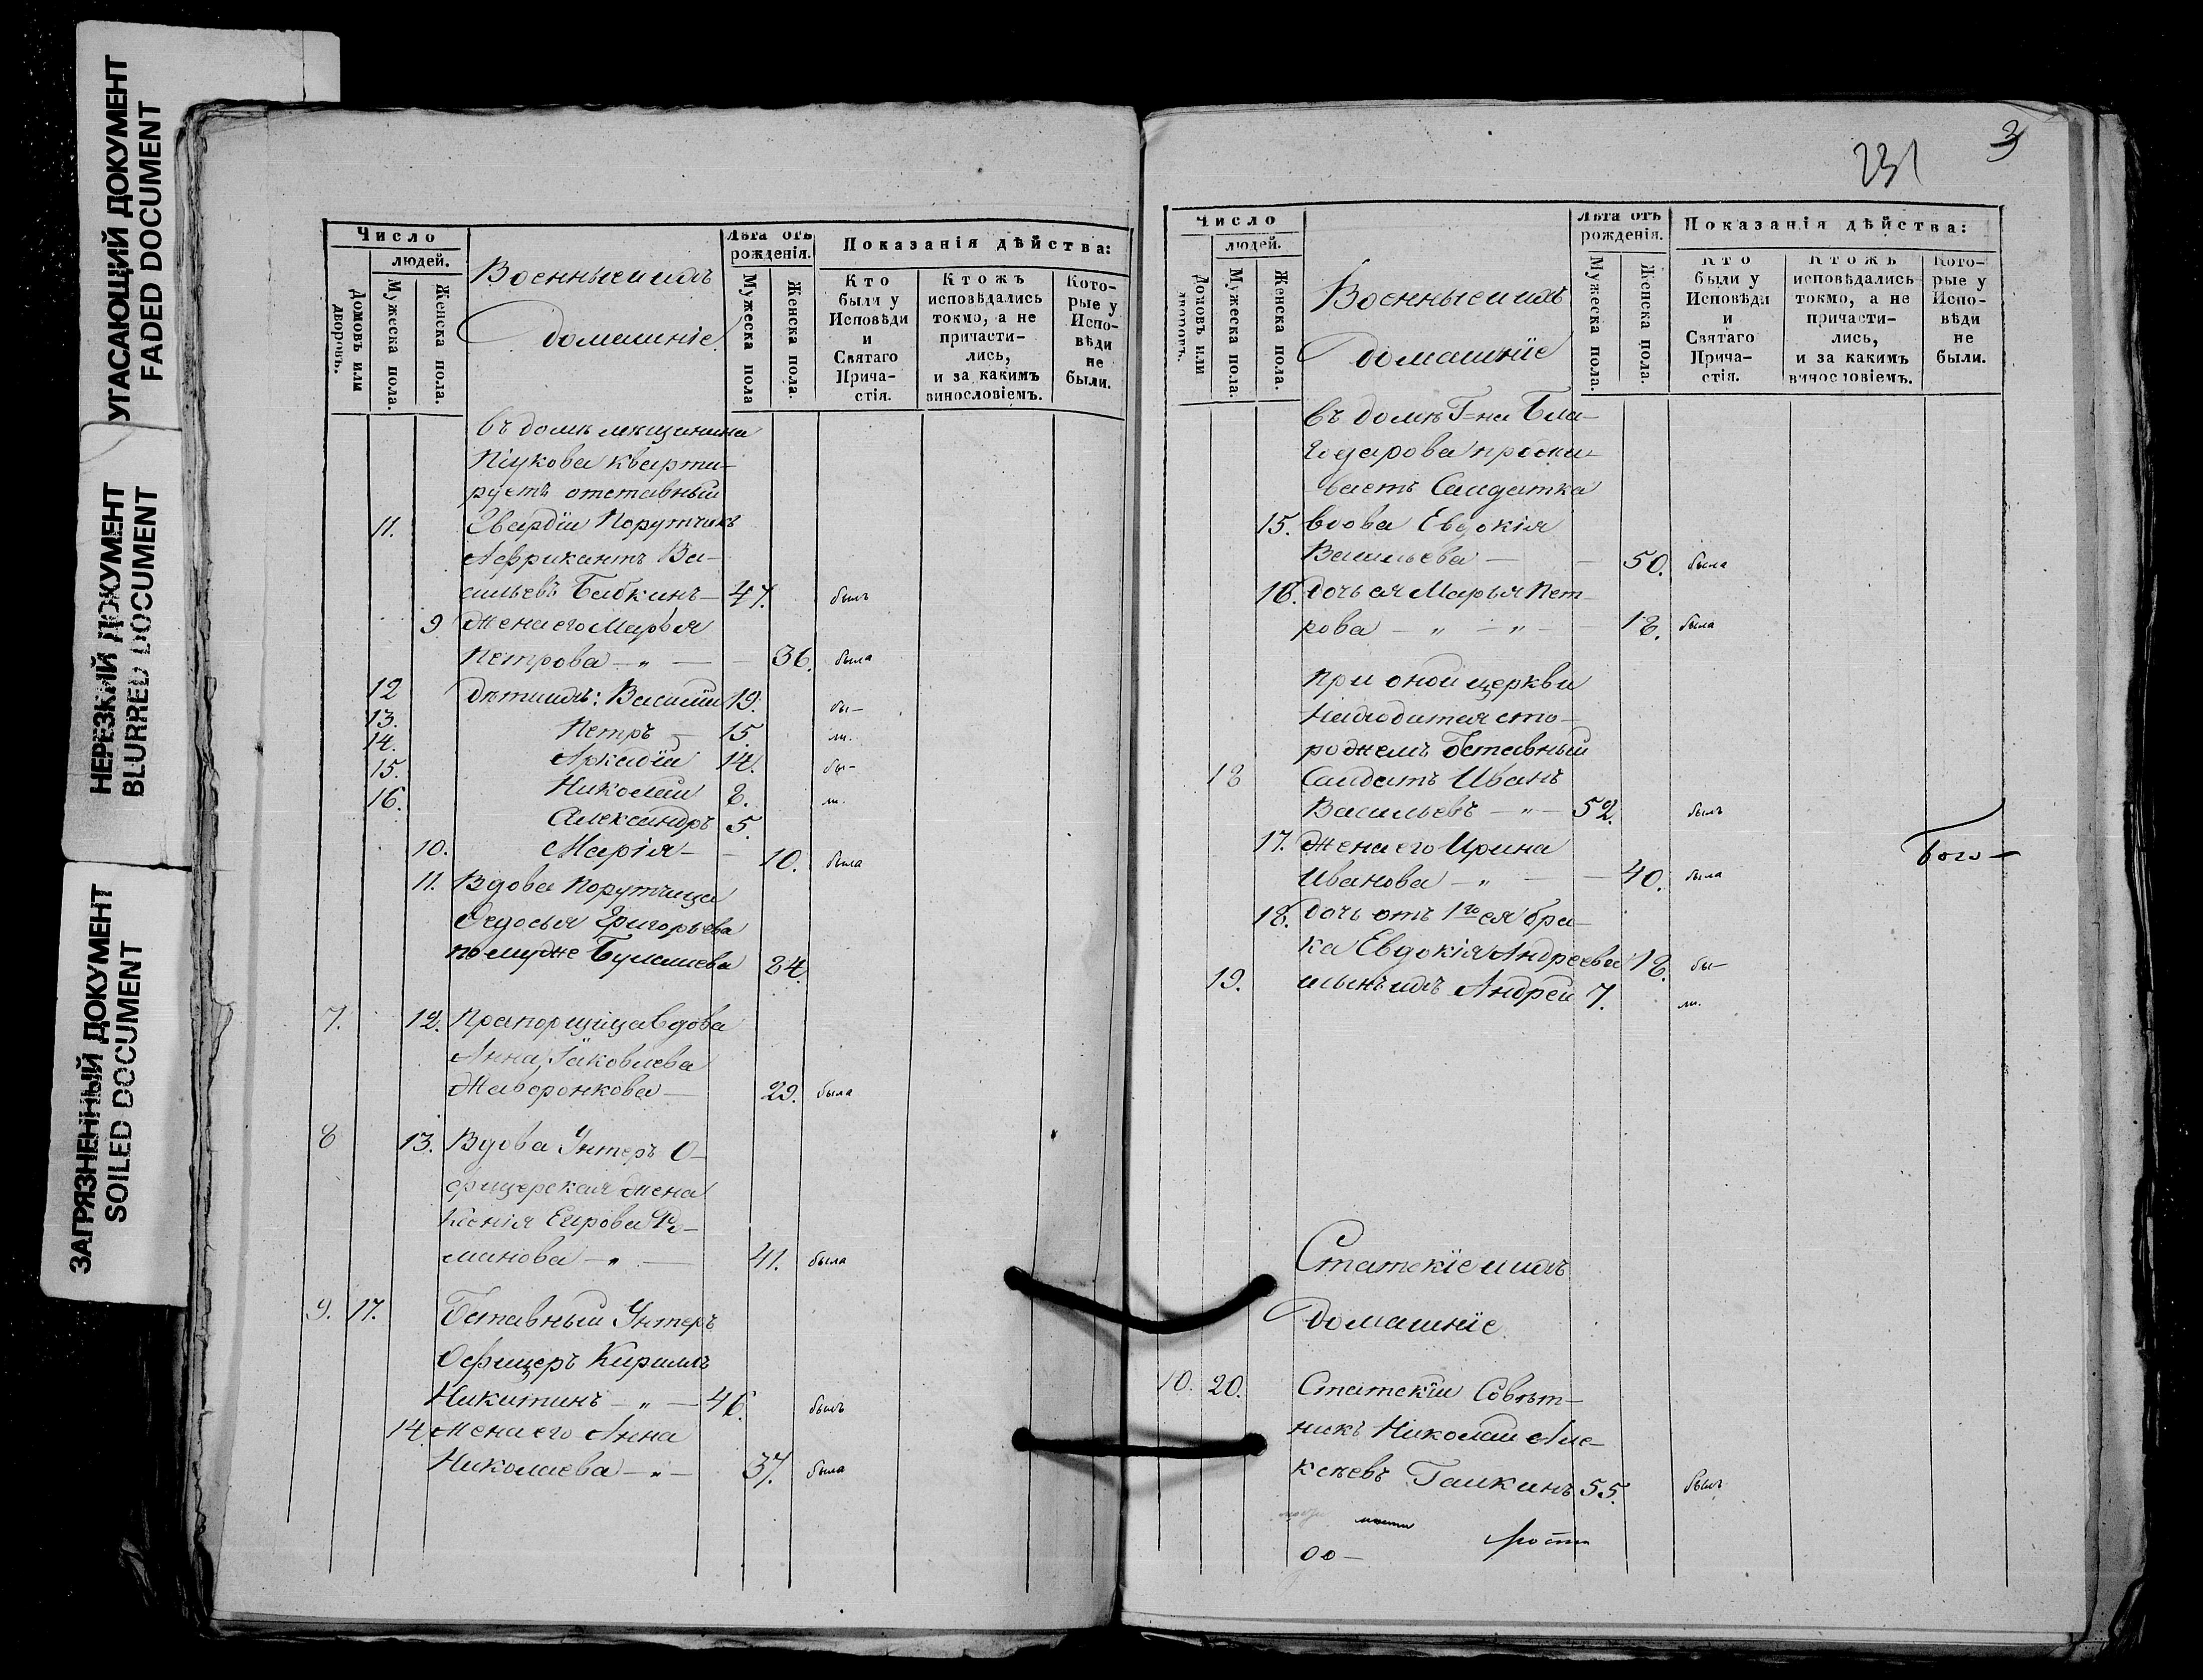 УГАСАЮЩИЙ ДОКУМЕНТ
FADED DOCUMENT
НЕРЕЗКИЙ ДОКУМЕНТ
BLURRED DOCUMENT
ЗАГРЯЗНЕННЫЙ ДОКУМЕНТ
SOILED DOCUMENT
Число
людей.
Домовъ или дворовъ.
Мужеска пола.
Женска пола.
Военные и ихъ
домашніе
Лѣта отъ рожденія.
Мужеска пола
Женска пола.
Показанія дѣйства:
Кто были у Исповѣди и Святаго Прича-стія.
Ктожъ исповѣдались токмо, а не причасти-лись, и за какимъ винословіемъ.
Кото-рые у Испо-вѣди не были.
въ домѣ мѣщанина
кварти-
руетъ отставный
11. Гвардіи Порутчикъ
Африкантъ Ва-
сильевъ Бабкинъ — 47. былъ
9 жена его Марья
Петрова — " — — 36. была
12 дѣти ихъ: Василій 19. бы-
13. Петръ — 15 ли.
14. Аркадій 14. бы-
15. Николай 8. ли.
16. Александръ 5.
10. Марія — — 10. была
11. Вдова Порутчица
Федосья Григорьева
по мужѣ 84.
7. 12. Прапорщица вдова
Анна Іаковлева
Жаворонкова — 29. была
8 13. Вдова Унтеръ О-
фицерская жена
Ксенія
манова — " — 41. была
9. 17. Отставный Унтеръ
Офицеръ Кириллъ
Никитинъ — " — 46. былъ
14. жена его Анна
Николаева — " — 37. была
231
3
Число
людей.
Домовъ или дворовъ.
Мужеска пола.
Женска пола.
Военные и ихъ
домашніе
Лѣта отъ рожденія.
Мужеска пола.
Женска пола.
Показанія дѣйства:
Кто были у Исповѣди и Святаго Прича-стія.
Ктожъ исповѣдались токмо, а не причасти-лись, и за какимъ винословіемъ.
Кото-рые у Испо-вѣди не были.
въ домѣ Г=на Бла-
годарова прожи-
ваетъ Салдатка
15. вдова Евдокія
Васильева — — 50. была
16. дочь ея Марья Пет-
рова — " — " — — 18. была
При оной церкви
находится сто-
рожемъ Отставный
18 Салдатъ Иванъ
Васильевъ — " — 52. былъ
17. жена его Ирина
Иванова — " — — 40. была
Бого-
18. дочь отъ 1го ея бра-
ка Евдокія Андреева 18. бы-
19. сынъ ихъ Андрей 7. ли.
Статскіе и ихъ
домашніе.
10. 20. Статскій Совѣт-
никъ Николай Але-
ксѣевъ Галкинъ 55. былъ